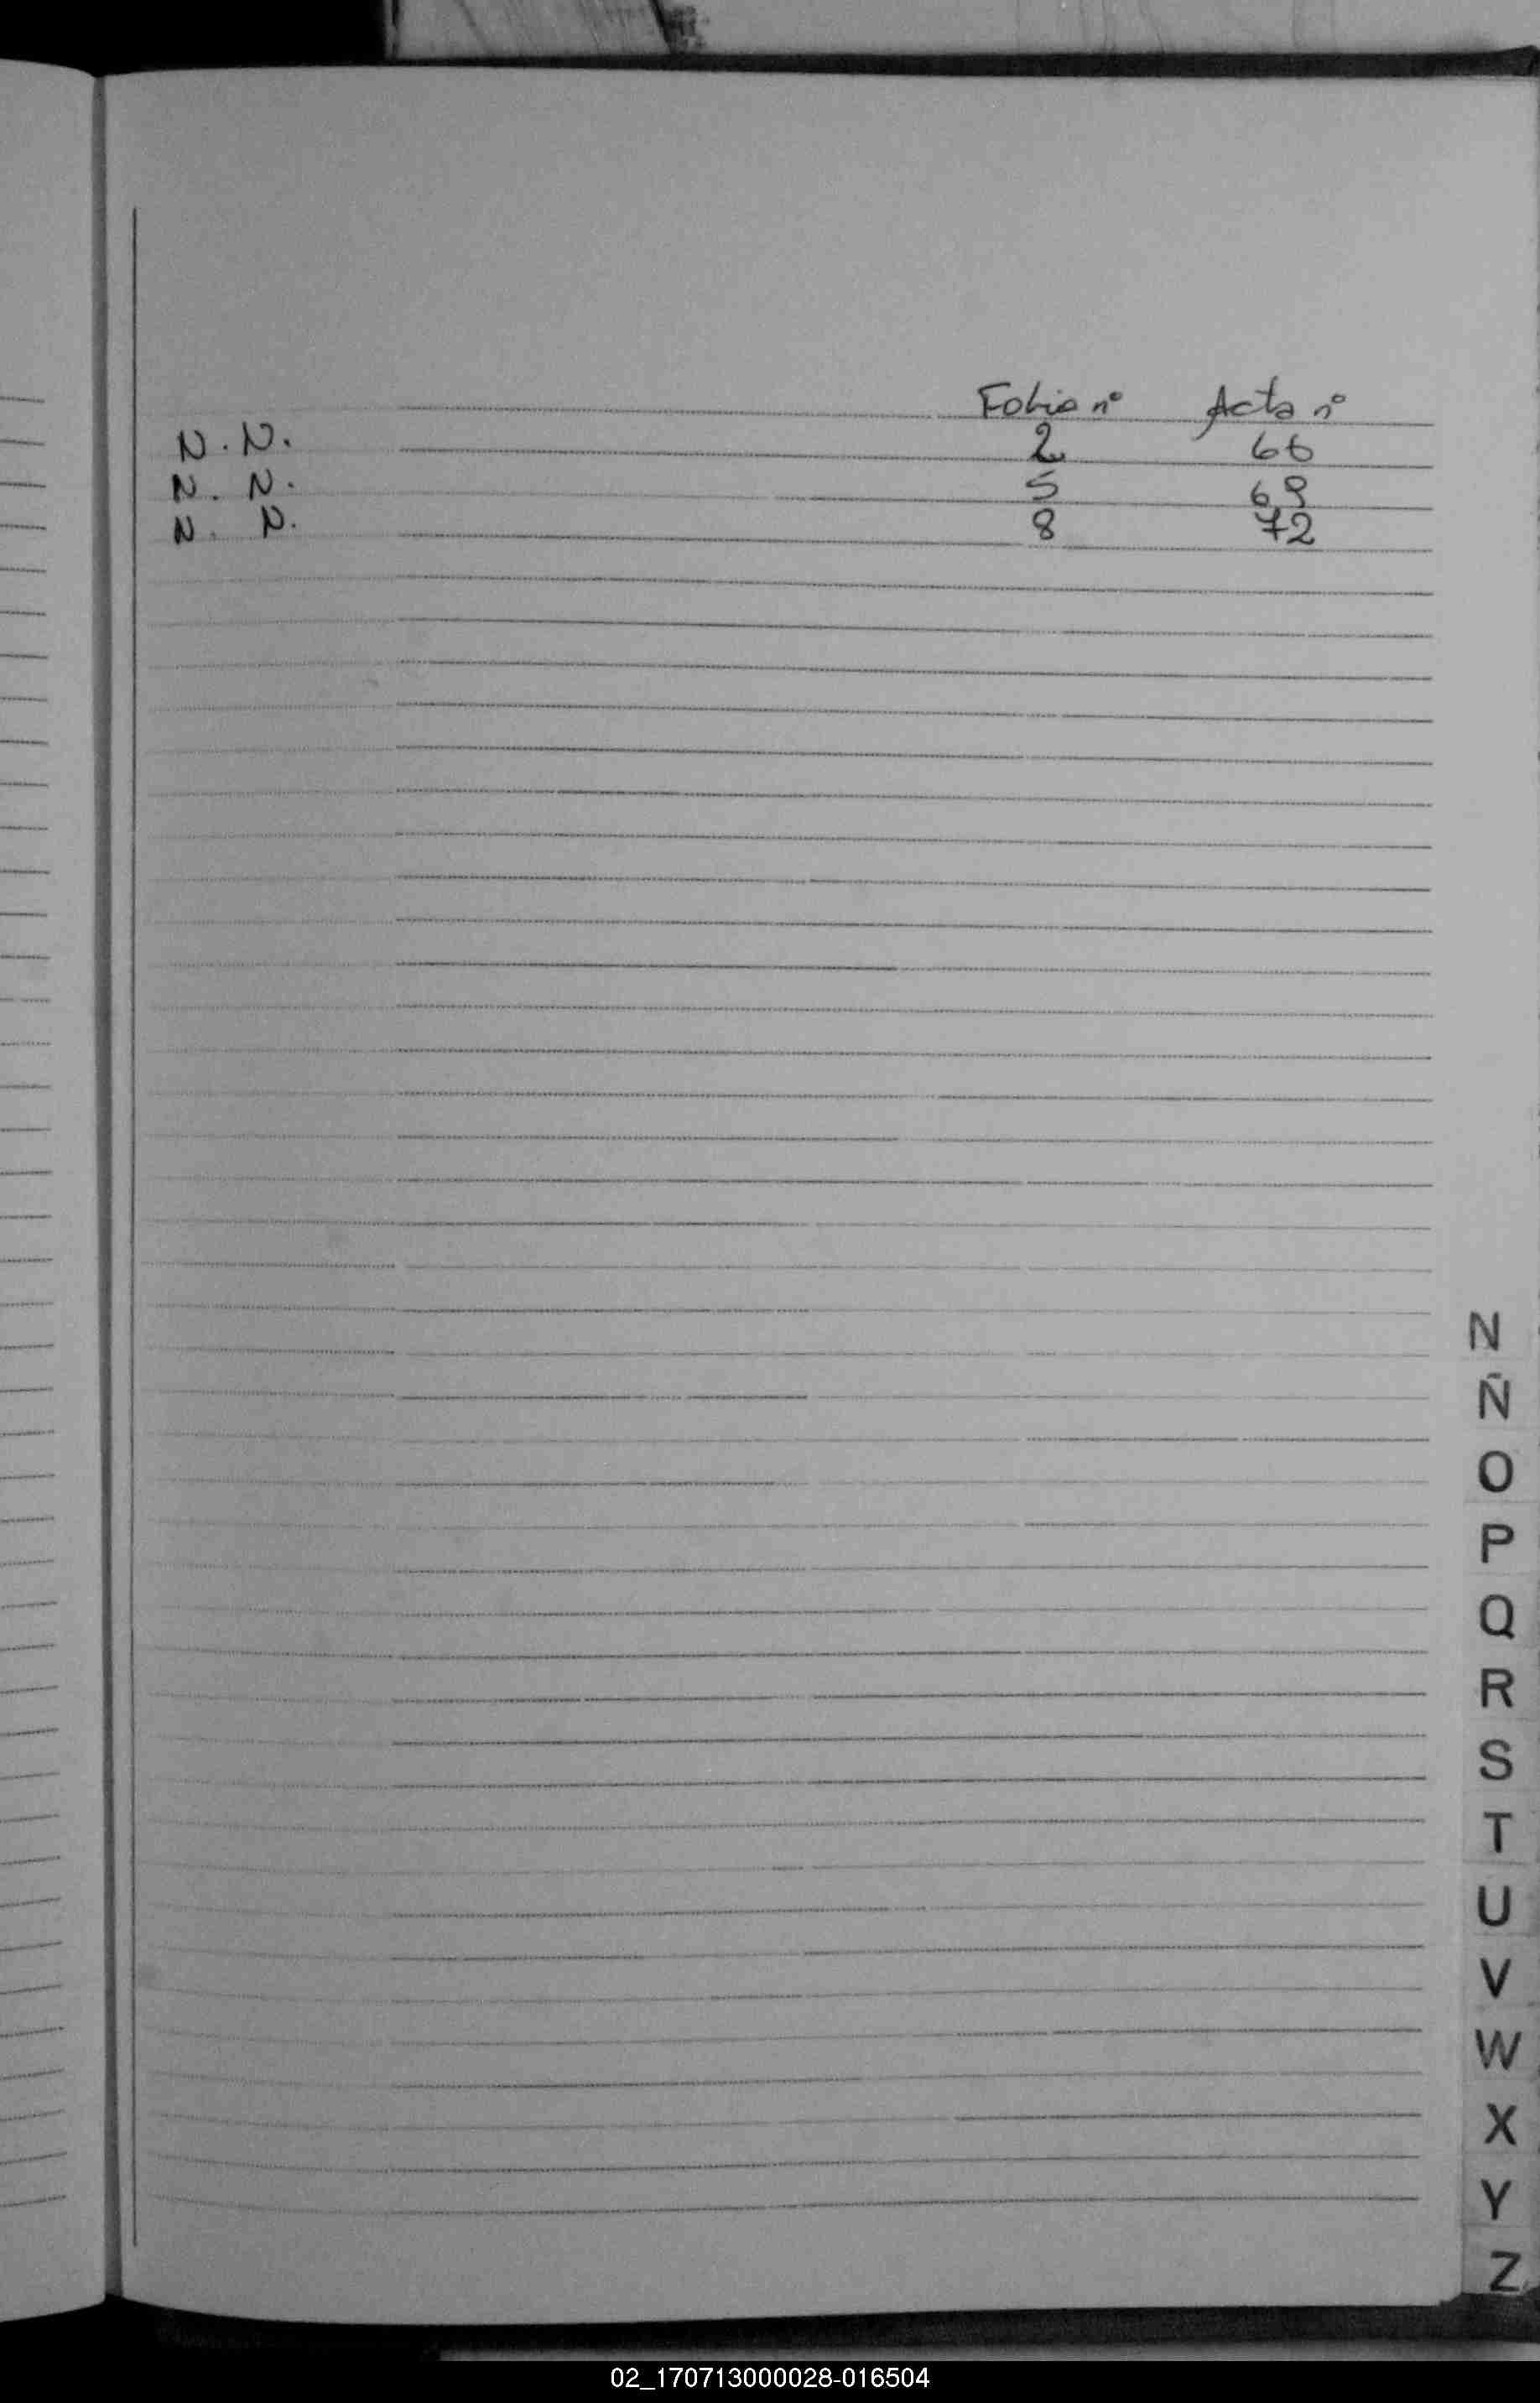 Folio nº Acta nº
N. N. 2 66
N. N. 5 69
N. N. 8 72
N
Ñ
O
P
Q
R
S
T
U
V
W
X
Y
Z
02_170713000028-016504